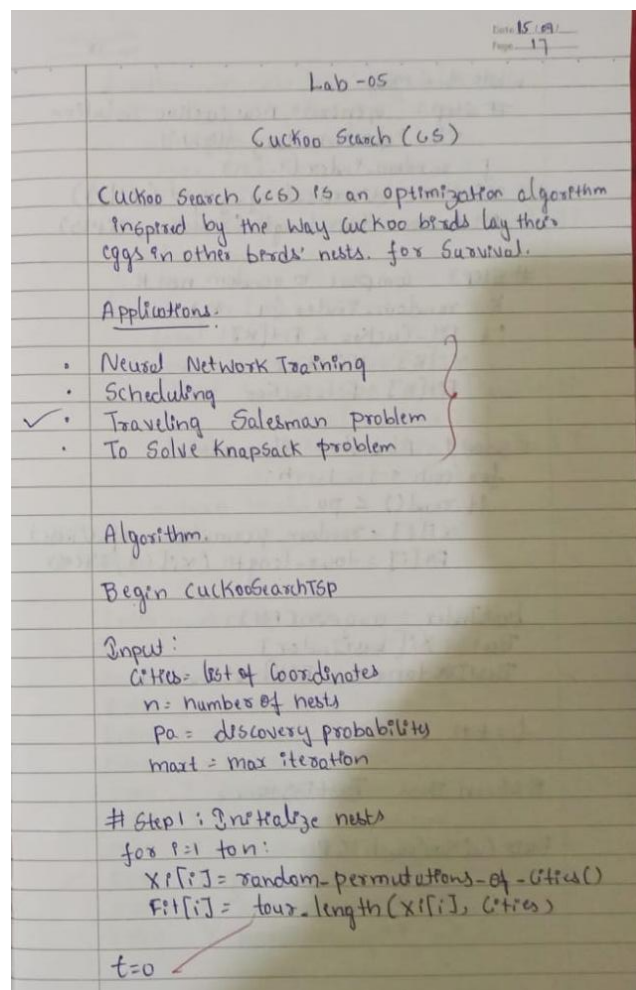 Date 15/09/
Page 17
Lab-05
Cuckoo Search (CS)
Cuckoo Search (CS) is an optimization algorithm
inspired by the way cuckoo birds lay their
eggs in other birds' nests. for Survival.
Applications.
• Neural Network Training
• Scheduling
✓ • Traveling Salesman problem
• To Solve Knapsack problem
Algorithm.
Begin CuckooSearchTSP
Input:
Cities = list of Coordinates
n = number of nests
pa = discovery probability
maxt = max iteration
# Step1 : Initialize nests
for i=1 to n:
Xi[i] = random-permutations-of-Cities()
Fit[i] = tour-length(Xi[i], Cities)
t=0